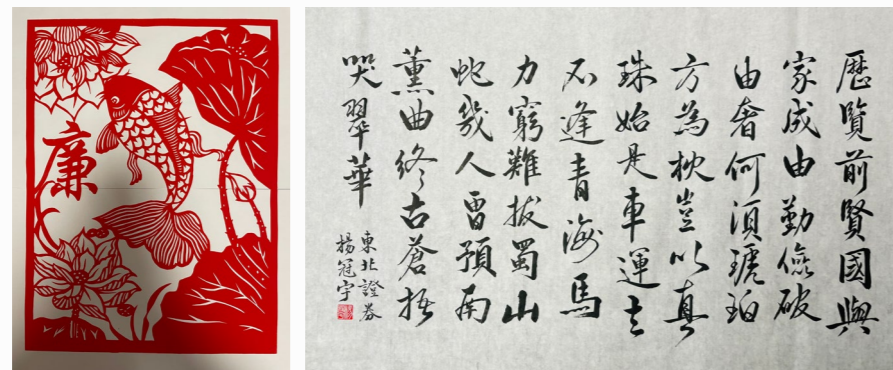 廉
歷覽前賢國與
家成由勤儉破
由奢何須琥珀
方為枕豈以真
珠始是車運去
不逢青海馬
力窮難拔蜀山
蛇幾人曾預南
薰曲終古蒼梧
哭翠華
東北證券
楊冠宇